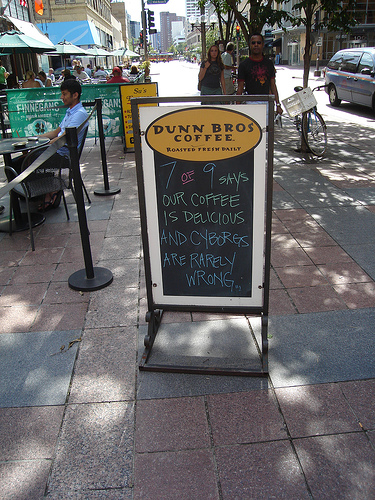 DUNN BROS
COFFEE
ROASTED FRESH DAILY
7 OF 9 SAYS
OUR COFFEE
IS DELICIOUS
AND CYBORGS
ARE RARELY
WRONG...
FINNEGANS